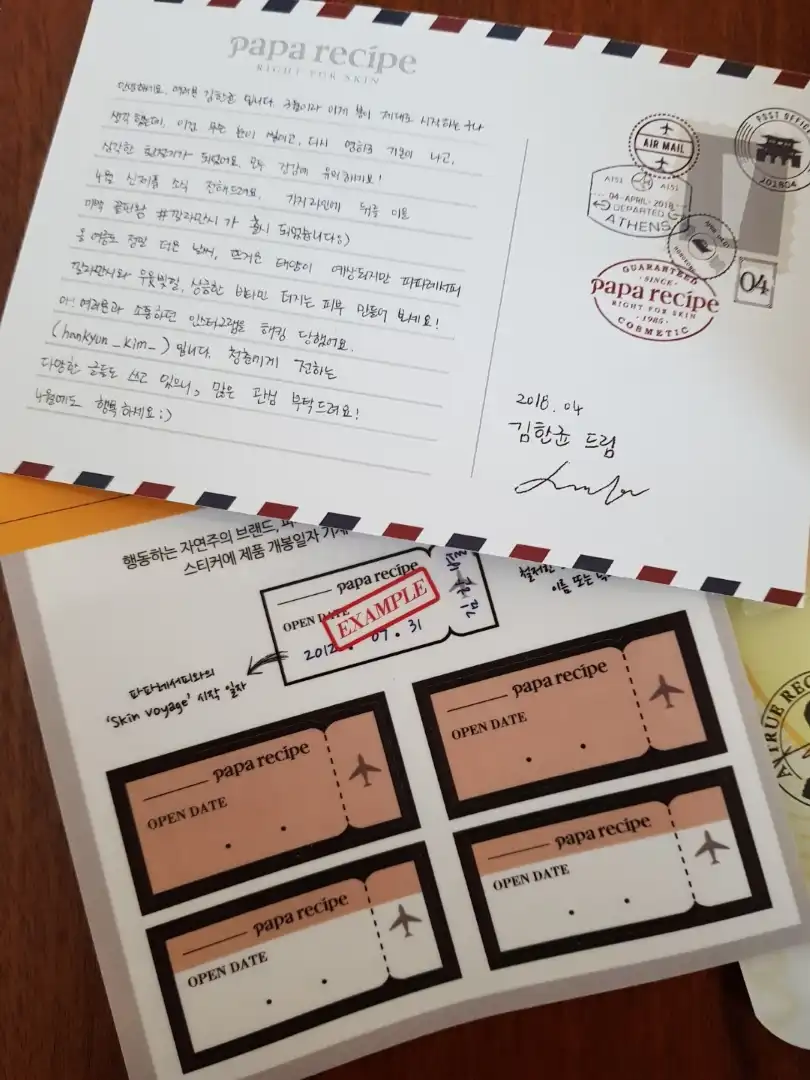 papa recipe
RIGHT FOR SKIN
안녕하세요. 여러분 김한균 입니다. 3월이라 이제 봄이 제대로 시작하는구나
생각 했는데, 이건 무슨 눈이 쌓이고, 다시 영하로 기온이 나고,
심각한 환절기가 되었어요. 모두 건강에 유의하기요!
4월 신제품 소식 전해드려요. 가지라인에 뒤를 이을
미백 끝판왕 #깔라만시가 출시 되었습니다:)
올 여름도 정말 더운 날씨, 뜨거운 태양이 예상되지만 파파레서피
깔라만시와 우윳빛깔, 상큼한 비타민 터지는 피부 만들어 보세요!
아! 여러분과 소통하던 인스타그램을 해킹 당했어요.
(hankyun_kim_) 입니다. 청춘에게 전하는
다양한 글들도 쓰고 있으니, 많은 관심 부탁드려요!
4월에도 행복하세요:)
AIR MAIL
POST OFFICE
201804
A151 A151
04·APRIL·2018
DEPARTED
ATHENS
04
GUARANTEED
·SINCE·
papa recipe
RIGHT FOR SKIN
·1985·
COSMETIC
2018. 04
김한균 드림
행동하는 자연주의 브랜드,
스티커에 제품 개봉일자
papa recipe
OPEN DATE
EXAMPLE
2012. 07. 31
이름 또는
파파레서피와의
'Skin voyage' 시작 일자
papa recipe
OPEN DATE
papa recipe
OPEN DATE
papa recipe
OPEN DATE
papa recipe
OPEN DATE